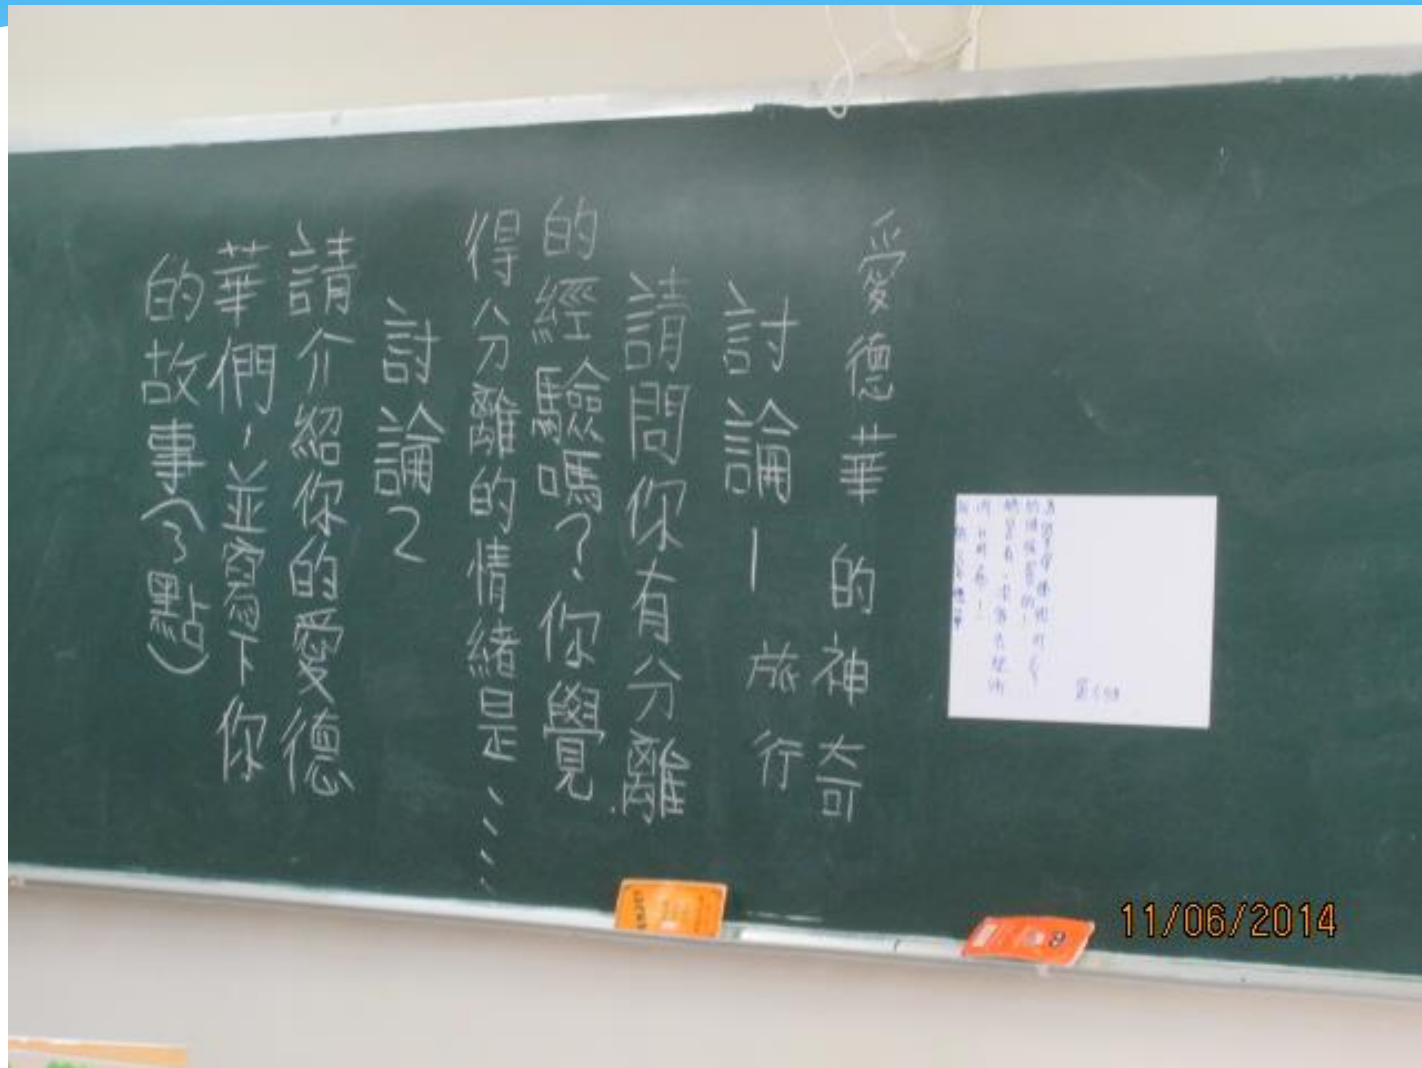 愛德華的神奇
旅行
討論1
請問你有分離
的經驗嗎?你覺
得分離的情緒是、、、、
討論2
請介紹你的愛德
華們,並寫下你
的故事(3點)
11/06/2014